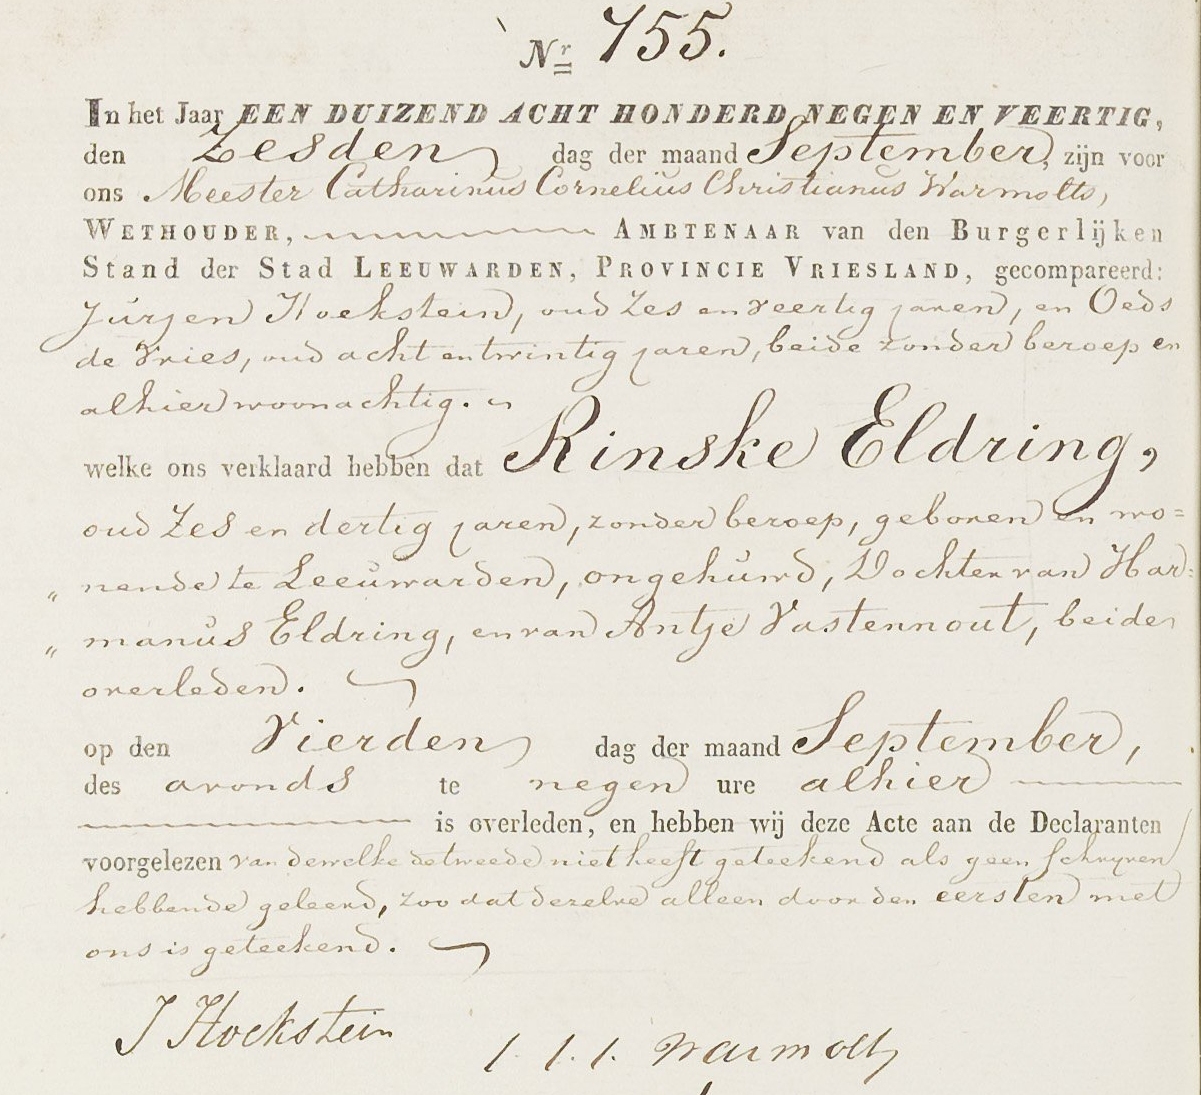 Nr 755.
In het Jaar EEN DUIZEND ACHT HONDERD NEGEN EN VEERTIG,
den Zesden dag der maand September, zijn voor
ons Meester Catharinus Cornelius Christianus Warmolts,
WETHOUDER, AMBTENAAR van den Burgerlijken
Stand der Stad LEEUWARDEN, PROVINCIE VRIESLAND, gecompareerd:
Jurjen Hoekstein, oud Zes en veertig jaren, en Oeds
de Vries, oud acht en twintig jaren, beide zonder beroep en
alhier woonachtig.
welke ons verklaard hebben dat Rinske Eldring,
oud Zes en dertig jaren, zonder beroep, geboren en wo=
„ nende te Leeuwarden, ongehuwd, Dochter van Har=
„ manus Eldring, en van Antje Vastenhout, beide
overleden.
op den Vierden dag der maand September,
des avonds te negen ure alhier
is overleden, en hebben wij deze Acte aan de Declaranten
voorgelezen van dewelke de tweede niet heeft geteekend als geen schryven
hebbende geleerd, zoo dat dezelve alleen door den eersten met
ons is geteekend.
J Hoekstein
Warmolts